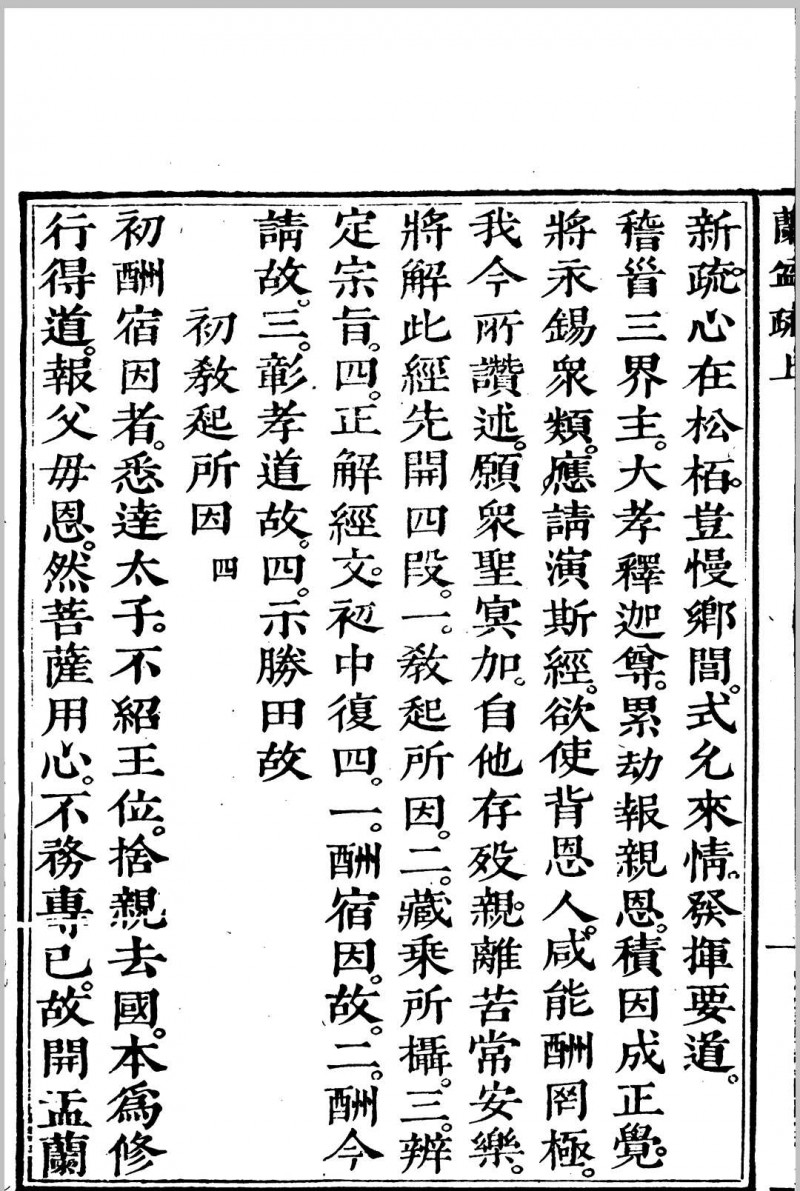 蘭盆疏上
新疏。心在松栢。豈慢鄉閭。式允來情。發揮要道。
稽首三界主。大孝釋迦尊。累劫報親恩。積因成正覺。
將永錫眾類。應請演斯經。欲使背恩人。咸能酬罔極。
我今所讚述。願眾聖冥加。自他存歿親。離苦常安樂。
將解此經先開四段。一。敎起所因。二。藏乘所攝。三。辨
定宗旨。四。正解經文。初中復四。一。酬宿因故。二。酬今
請故。三。彰孝道故。四。示勝田故
初敎起所因 四
初酬宿因者。悉達太子。不紹王位。捨親去國。本爲修
行得道。報父毋恩。然菩薩用心。不務專已。故開盂蘭